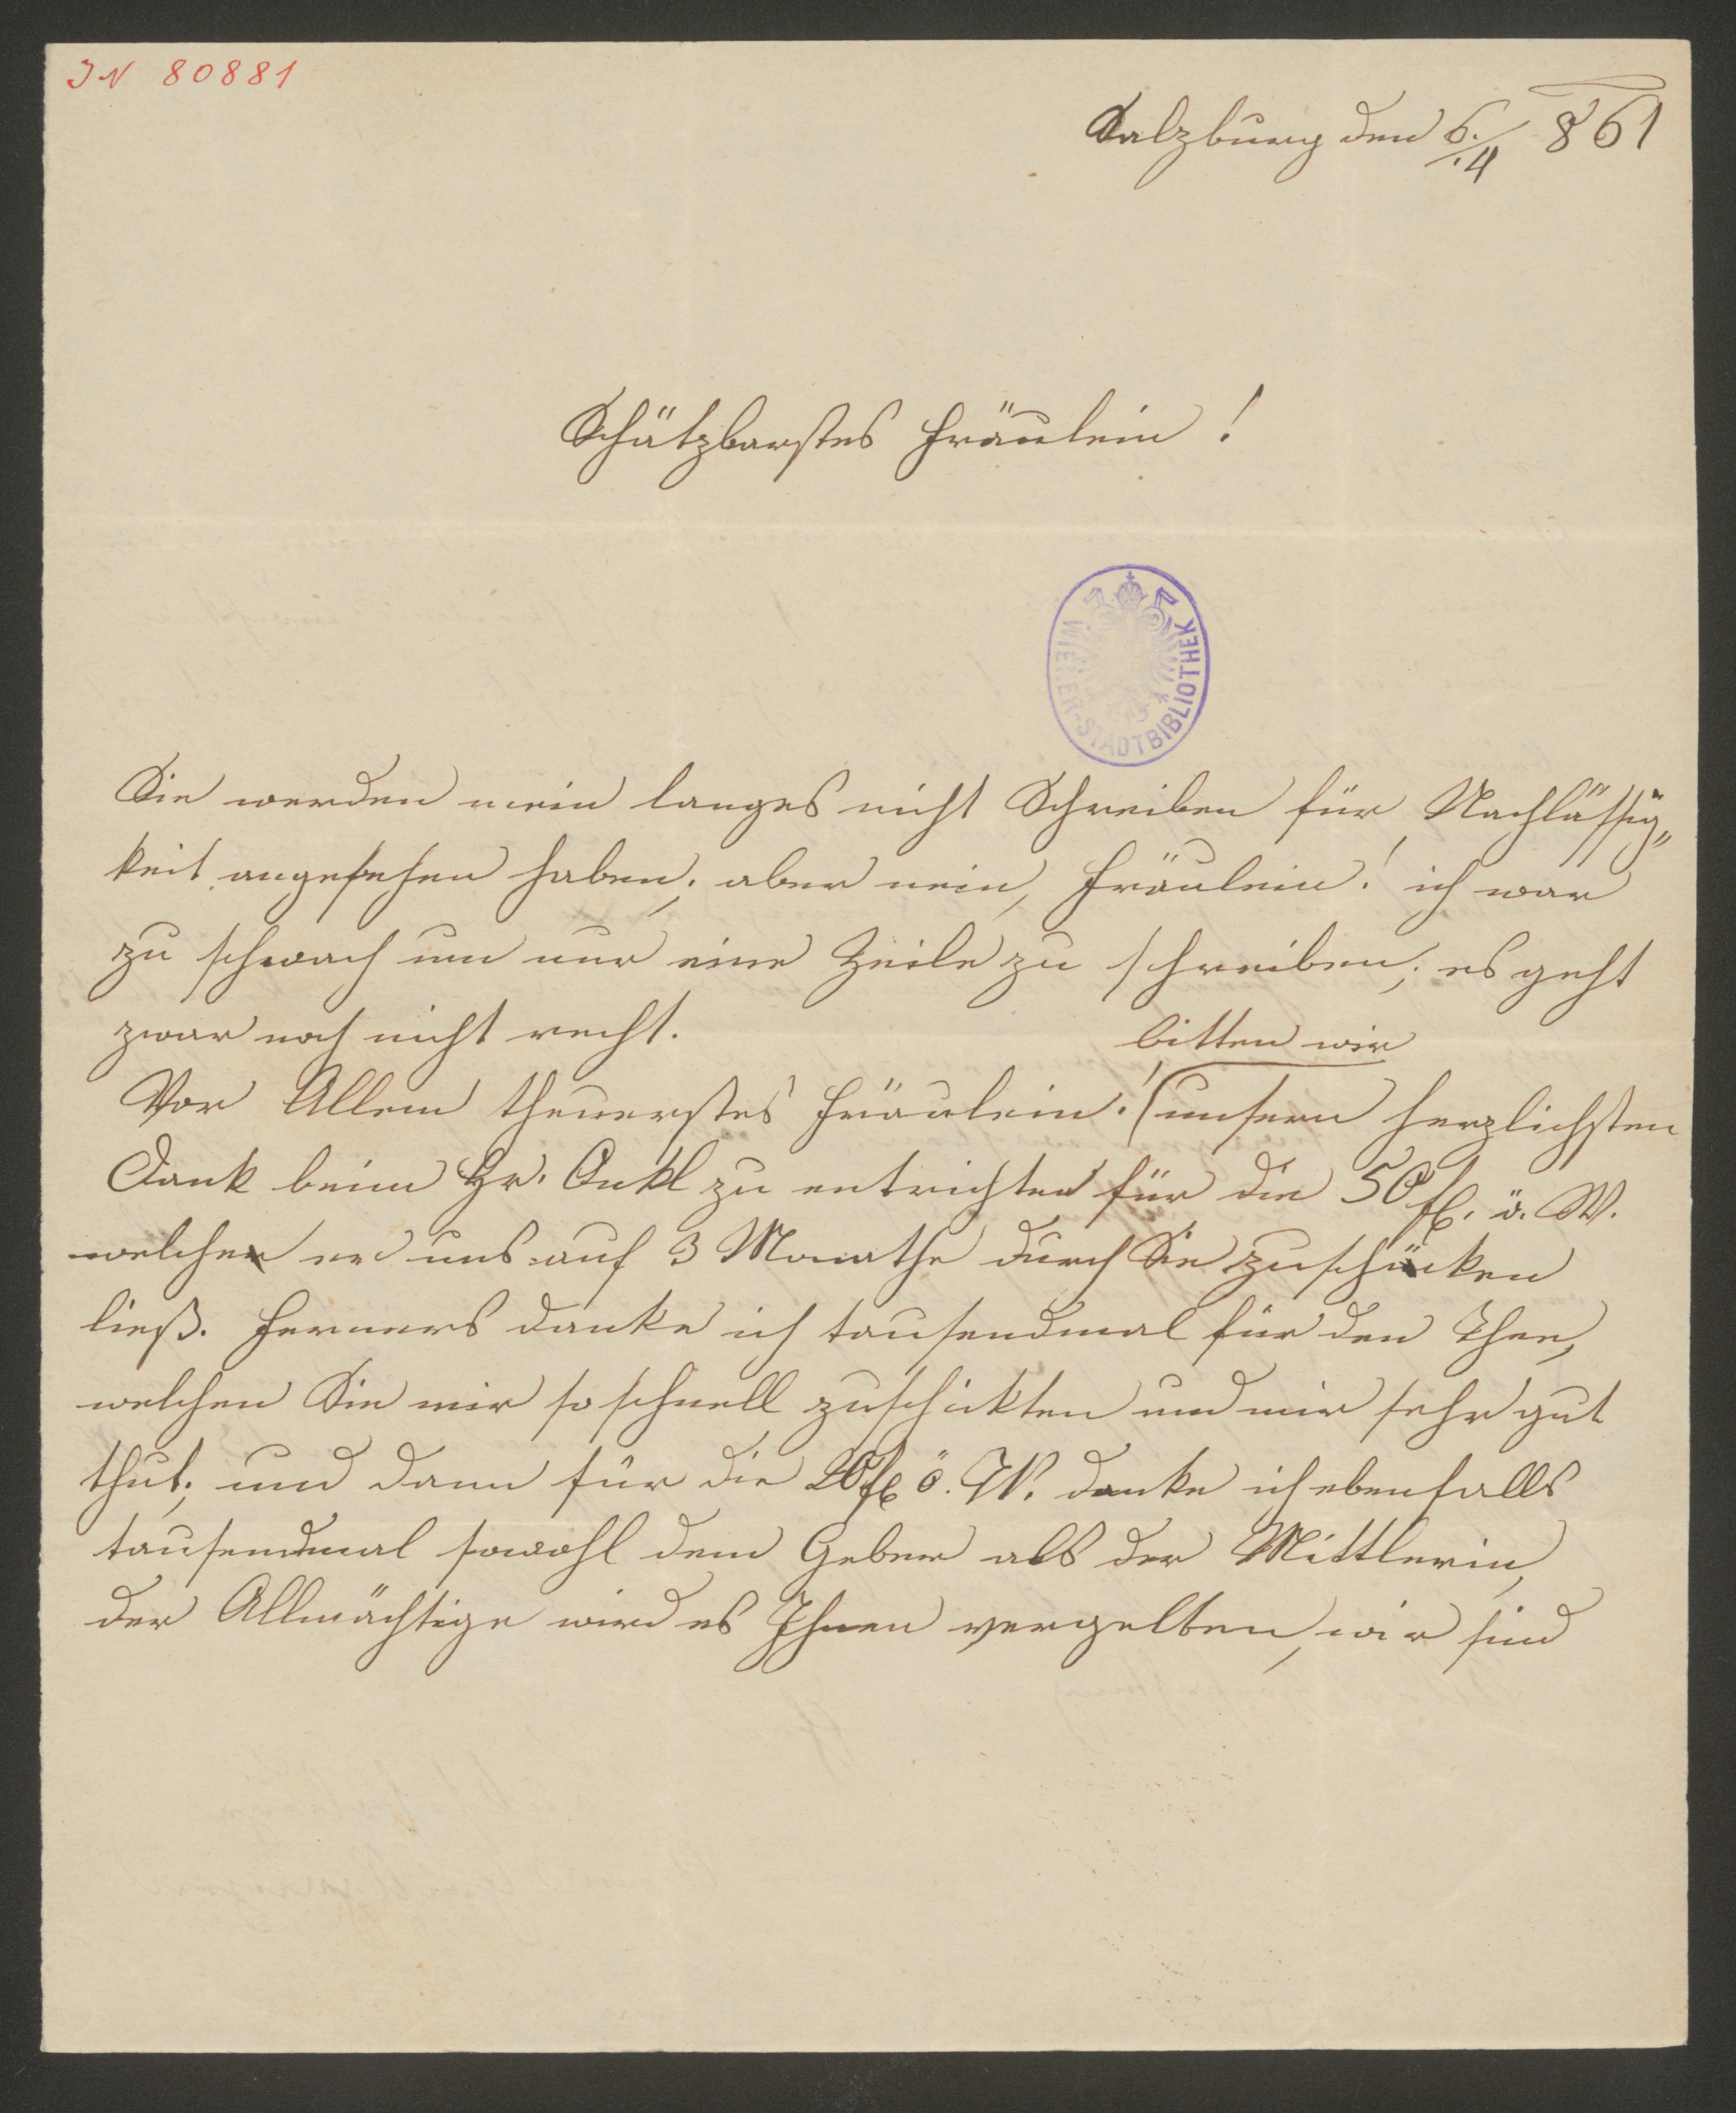 IN 80881
Salzburg den 6./4 861
Schätzbarstes Fräulein!
WIENER-STADTBIBLIOTHEK
Sie werden mein langes nicht Schreiben für Nachlässig„
keit angesehen haben; aber nein, Fräulein! ich war
zu schwach um nur eine Zeile zu schreiben; es geht
zwar noch nicht recht.
bitten wir
Vor Allem theuerstes Fräulein! unsern herzlichsten
Dank beim Hr. Onkl zu entrichten für die 50 fl. ö. W.
welche er uns auf 3 Monathe durch Sie zuschicken
ließ. Ferners danke ich tausendmal für den Thee,
welchen Sie mir so schnell zuschickten und mir sehr gut
thut; und dann für die 20 fl ö. W. danke ich ebenfalls
tausendmal sowohl dem Geber als der Mittlerin,
der Allmächtige wird es Ihnen vergelten, wir sind